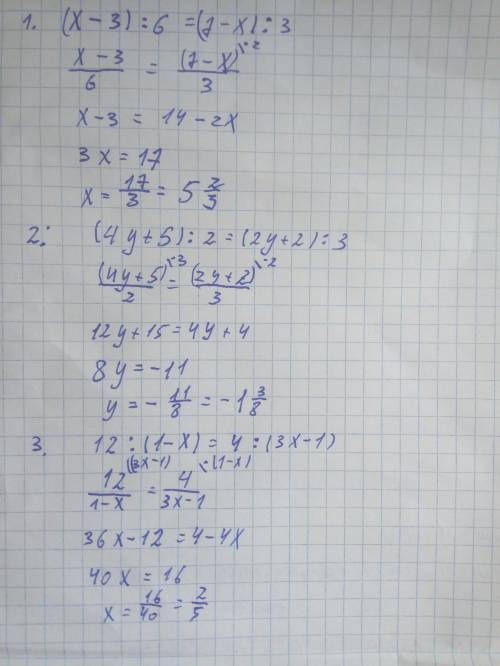 1. (x-3):6 =(7-x):3
x-3/6 = (7-x)\·2/3
x-3 = 14-2x
3x=17
x=17/3=5 2/3
2: (4y+5):2=(2y+2):3
(4y+5)\·3/2=(2y+2)\·2/3
12y+15=4y+4
8y=-11
y=-11/8=-1 3/8
3. 12:(1-x)=4:(3x-1)
12\(3x-1)/1-x=4\·(1-x)/3x-1
36x-12=4-4x
40x=16
x=16/40=2/5